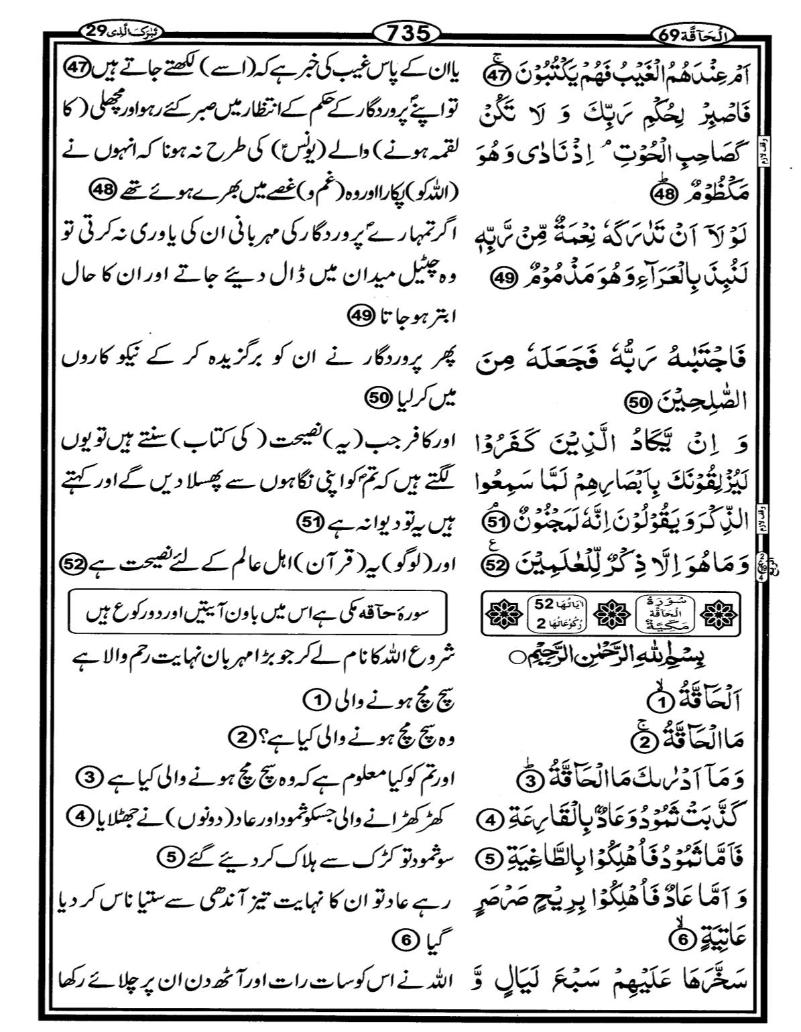 اَلْحَآقَّة 69
735
تَبٰرَكَ الَّذِی 29
اَمْ عِنْدَهُمُ الْغَيْبُ فَهُمْ يَكْتُبُوْنَ 47
یا ان کے پاس غیب کی خبر ہے کہ (اسے) لکھتے جاتے ہیں 47
فَاصْبِرْ لِحُكْمِ رَبِّكَ وَ لَا تَكُنْ
كَصَاحِبِ الْحُوْتِ ۘ اِذْ نَادٰى وَ هُوَ
مَكْظُوْمٌ 48
وقف لازم
تو اپنے پروردگار کے حکم کے انتظار میں صبر کئے رہو اور مچھلی (کا
لقمہ ہونے) والے (یونسؑ) کی طرح نہ ہونا کہ انہوں نے
(اللہ کو) پکارا اور وہ (غم و) غصے میں بھرے ہوئے تھے 48
لَوْ لَاۤ اَنْ تَدٰرَكَهٗ نِعْمَةٌ مِّنْ رَّبِّهٖ
لَنُبِذَ بِالْعَرَآءِ وَ هُوَ مَذْمُوْمٌ 49
اگر تمہارے پروردگار کی مہربانی ان کی یاوری نہ کرتی تو
وہ چٹیل میدان میں ڈال دیئے جاتے اور ان کا حال
ابتر ہو جاتا 49
فَاجْتَبٰىهُ رَبُّهٗ فَجَعَلَهٗ مِنَ
الصّٰلِحِيْنَ 50
پھر پروردگار نے ان کو برگزیدہ کر کے نیکو کاروں
میں کر لیا 50
وَ اِنْ يَّكَادُ الَّذِيْنَ كَفَرُوْا
لَيُزْلِقُوْنَكَ بِاَبْصَارِهِمْ لَمَّا سَمِعُوا
الذِّكْرَ وَ يَقُوْلُوْنَ اِنَّهٗ لَمَجْنُوْنٌ 51
وقف لازم
اور کافر جب (یہ) نصیحت (کی کتاب) سنتے ہیں تو یوں
لگتے ہیں کہ تم کو اپنی نگاہوں سے پھسلا دیں گے اور کہتے
ہیں یہ تو دیوانہ ہے 51
وَ مَا هُوَ اِلَّا ذِكْرٌ لِّلْعٰلَمِيْنَ 52
اور (لوگو) یہ (قرآن) اہل عالم کے لئے نصیحت ہے 52
سُوْرَةُ الْحَآقَّةِ مَكِّيَّةٌ
اٰيَاتُهَا 52
رُكُوْعَاتُهَا 2
سورۂ حاقہ مکی ہے اس میں باون آیتیں اور دو رکوع ہیں
بِسْمِ اللّٰهِ الرَّحْمٰنِ الرَّحِيْمِ
شروع اللہ کا نام لے کر جو بڑا مہربان نہایت رحم والا ہے
اَلْحَآقَّةُ 1
سچ مچ ہونے والی 1
مَا الْحَآقَّةُ 2
وہ سچ مچ ہونے والی کیا ہے؟ 2
وَ مَاۤ اَدْرٰىكَ مَا الْحَآقَّةُ 3
اور تم کو کیا معلوم ہے کہ وہ سچ مچ ہونے والی کیا ہے 3
كَذَّبَتْ ثَمُوْدُ وَ عَادٌۢ بِالْقَارِعَةِ 4
کھڑکھڑانے والی جس کو ثمود اور عاد (دونوں) نے جھٹلایا 4
فَاَمَّا ثَمُوْدُ فَاُهْلِكُوْا بِالطَّاغِيَةِ 5
سو ثمود تو کڑک سے ہلاک کر دیئے گئے 5
وَ اَمَّا عَادٌ فَاُهْلِكُوْا بِرِيْحٍ صَرْصَرٍ
عَاتِيَةٍ 6
رہے عاد تو ان کا نہایت تیز آندھی سے ستیا ناس کر دیا
گیا 6
سَخَّرَهَا عَلَيْهِمْ سَبْعَ لَيَالٍ وَّ
اللہ نے اس کو سات رات اور آٹھ دن ان پر چلائے رکھا